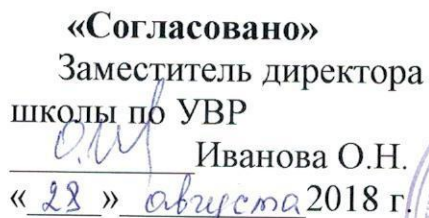 «Согласовано»
Заместитель директора
школы по УВР
Иванова О.Н.
« 28 » августа 2018 г.